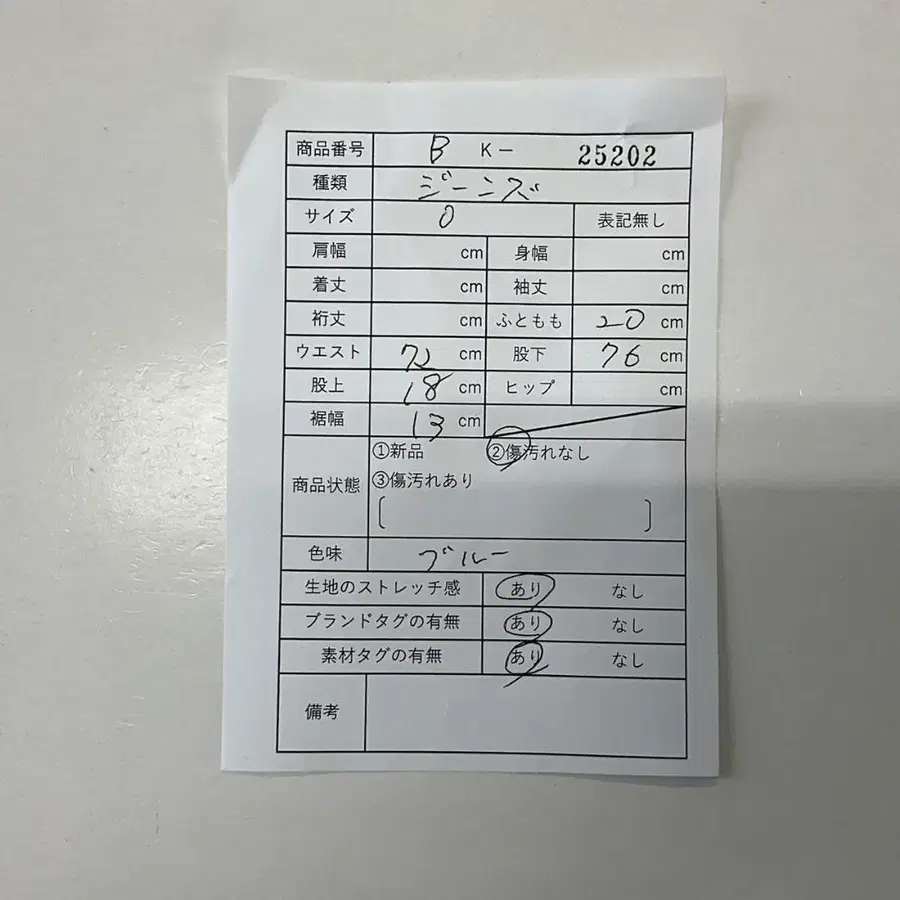 商品番号 B K- 25202
種類 ジーンズ
サイズ 0 表記無し
肩幅 cm 身幅 cm
着丈 cm 袖丈 cm
裄丈 cm ふともも 20 cm
ウエスト 72 cm 股下 76 cm
股上 18 cm ヒップ cm
裾幅 13 cm
商品状態 ①新品 ②傷汚れなし
③傷汚れあり
[ ]
色味 ブルー
生地のストレッチ感 あり なし
ブランドタグの有無 あり なし
素材タグの有無 あり なし
備考